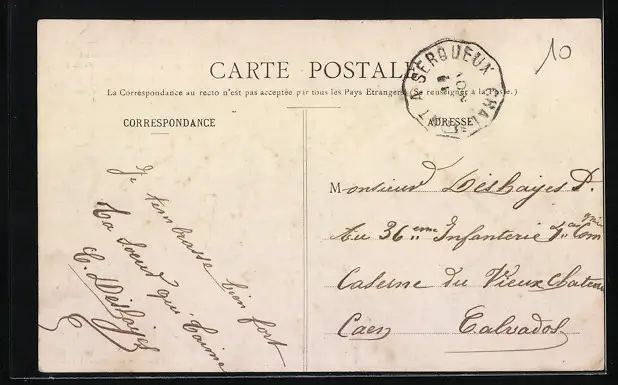 10
CARTE POSTALE
La Correspondance au recto n'est pas acceptée par tous les Pays Etrangers (Se renseigner à la Poste.)
CORRESPONDANCE
Je t'embrasse bien fort
Ta Soeur qui t'aime
C. Deshayes
ADRESSE
Monsieur Deshayes P.
Au 36eme Infanterie Com
Caserne du Vieux Chateau
Caen Calvados
SERQUEUX